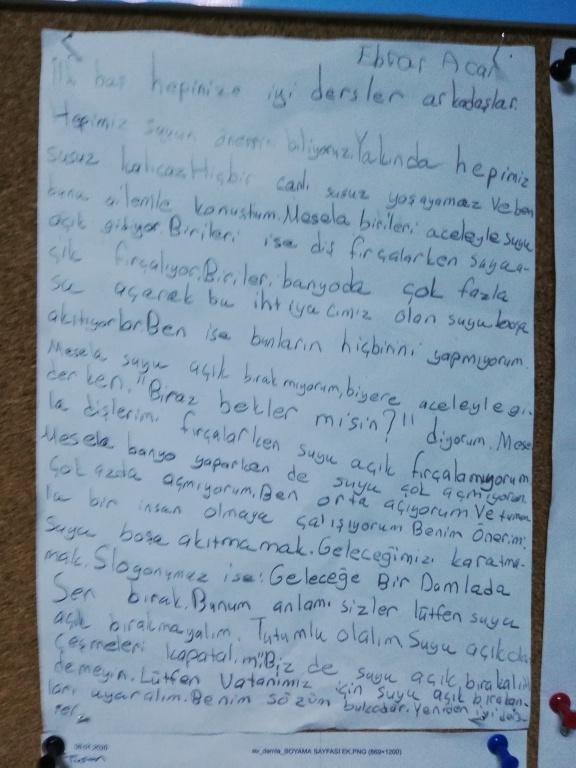 Ebrar Acar
İlk baş hepinize iyi dersler arkadaşlar.
Hepimiz suyun önemin biliyoruz.Yakında hepimiz
susuz kalıcaz.Hiçbir canlı susuz yaşayamaz ve ben
bunu ailemle konuştum.Mesela birileri aceleyle suyu
açık gidiyor.Birileri ise diş fırçalarken suyu a-
çık fırçalıyor.Birileri banyoda çok fazla
su açarak bu ihtiyacımız olan suyu boşa
akıtıyorlar.Ben ise bunların hiçbirini yapmıyorum.
Mesela suyu açık bırakmıyorum, biyere aceleyle gi-
derken. "Biraz bekler misin?" diyorum. Mese
la dişlerimi fırçalarken suyu açık fırçalamıyorum
Mesela banyo yaparken de suyu çok açmıyorum
çok azda açmıyorum. Ben orta açıyorum ve tutum
la bir insan olmaya çalışıyorum Benim Önerim:
Suyu boşa akıtmamak. Geleceğimizi karatma-
mak. Slogonumuz ise: Geleceğe Bir Damlada
Sen bırak. Bunum anlamı sizler lütfen suyu
açık bırakmayalım. Tutumlu olalım Suyu açıkda
Çeşmeleri kapatalım."Biz de suyu açık bırakalım
demeyin. Lütfen Vatanımız için suyu açık bırakan-
ları uyaralım. Benim sözüm bukadar. Yeniden iyi ders-
ler.
su_damla_BOYAMA SAYFASI EK.PNG (869×1200)